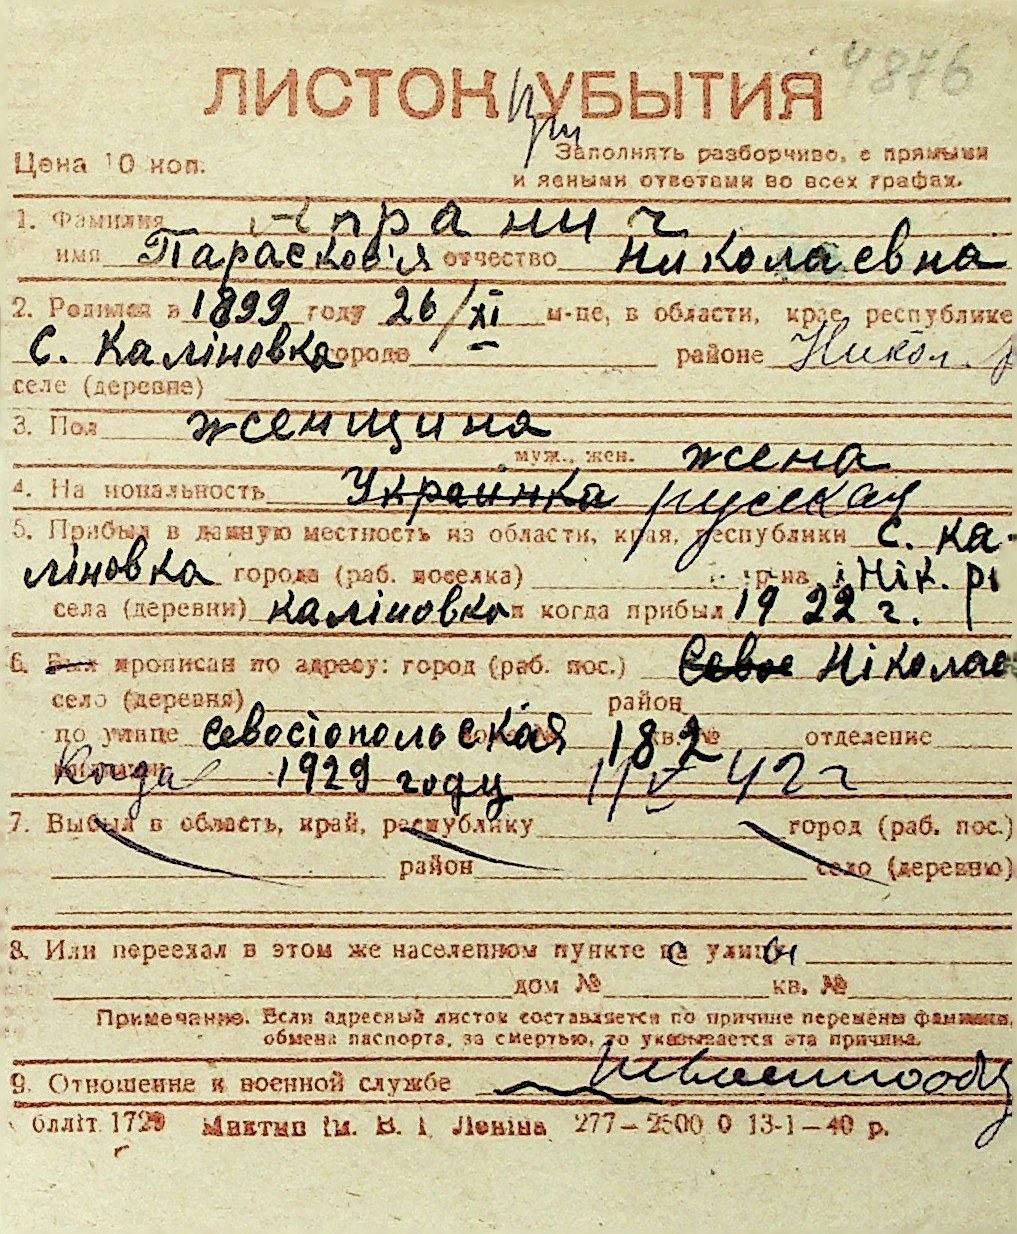 4876
ЛИСТОК УБЫТИЯ
Цена 10 коп.
Заполнять разборчиво, с прямыми
и ясными ответами во всех графах.
1. Фамилия Апранич
имя Парасков'я отчество Николаевна
2. Родился в 1899 году 26/XI м-це, в области, крае, республике
с. Каліновка городе районе Никол. р
селе (деревне)
3. Пол женщина
муж., жен. жена
4. Национальность Украинка русская
5. Прибыл в данную местность из области, края, республики с. Ка-
ліновка города (раб. поселка) р-на Нік. рі
села (деревни) Каліновка и когда прибыл 1922 г.
6. Был прописан по адресу: город (раб. пос.) Севос Ніколаев
село (деревня) район
по улице Севостіопольская 182 кв. № отделение
милиции Когда 1929 году 1/IV 42 г
7. Выбыл в область, край, республику город (раб. пос.)
район село (деревню)
8. Или переехал в этом же населенном пункте на улицу
дом № кв. №
Примечание. Если адресный листок составляется по причине перемены фамилии,
обмена паспорта, за смертью, то указывается эта причина.
9. Отношение к военной службе невоеннообяз
блліт. 1729 Миктип ім. В. І Леніна 277–2500 0 13-1–40 р.